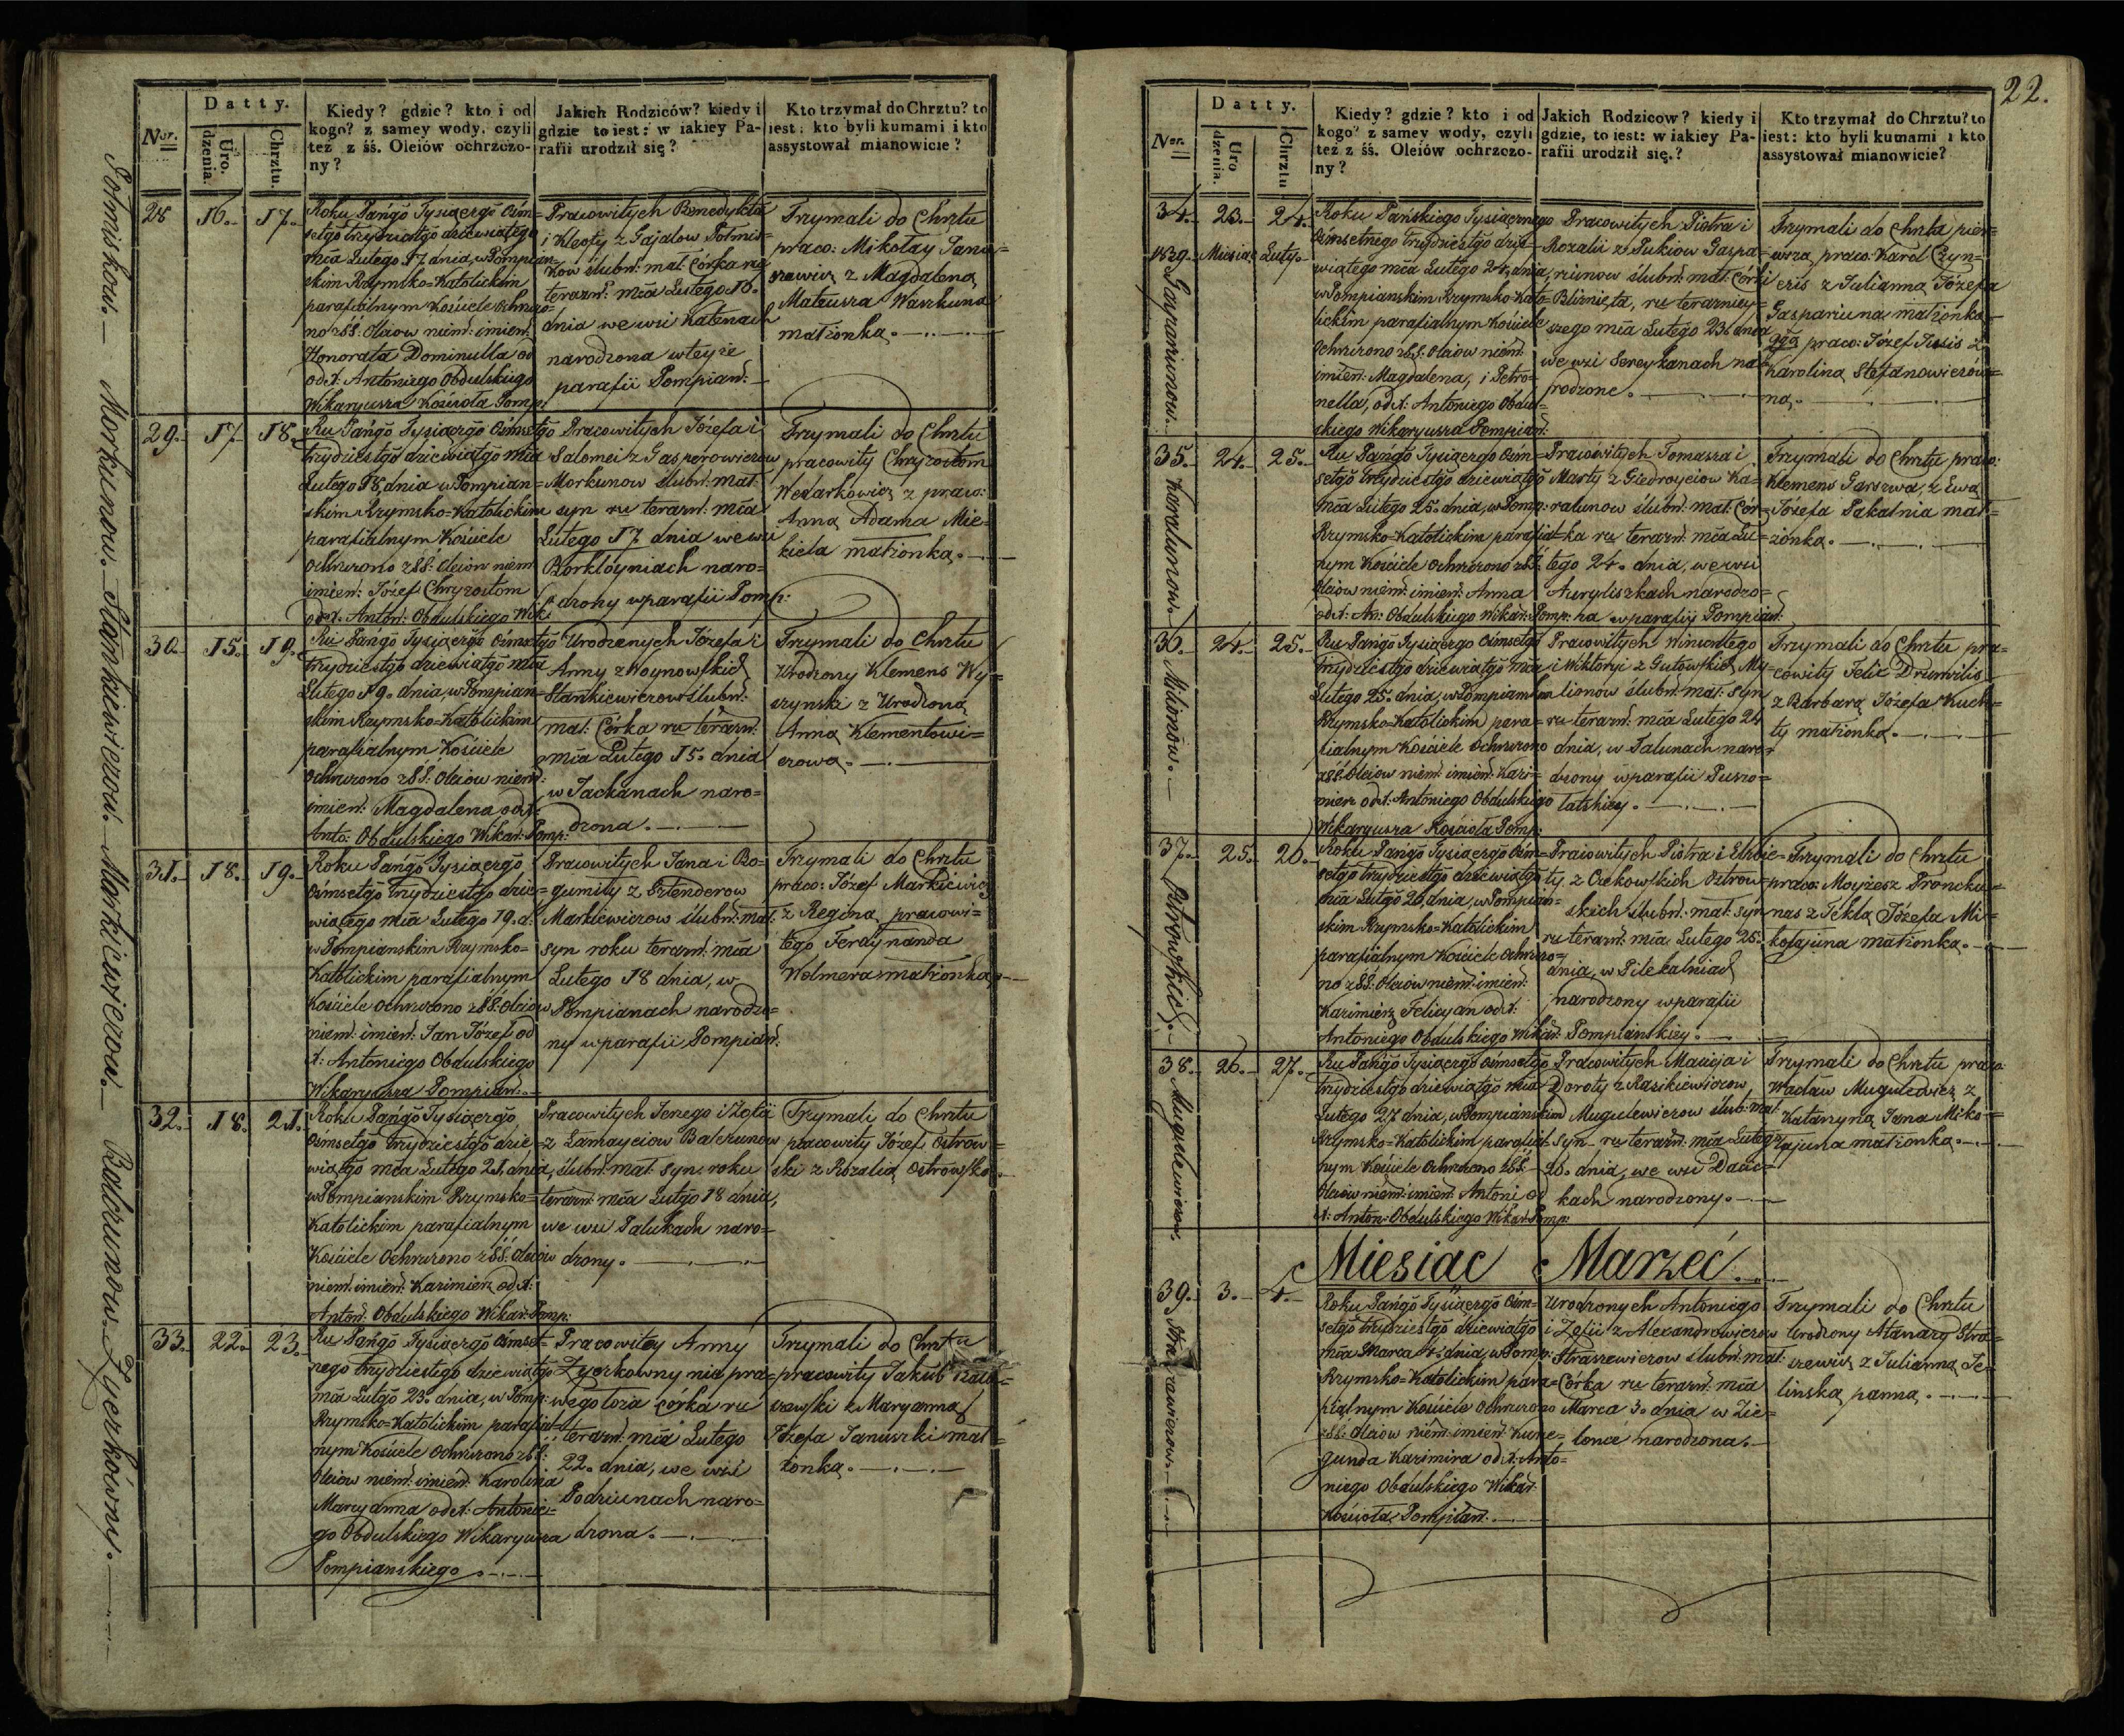 Datty.
Ner.
Uro. dzenia.
Chrztu.
Kiedy? gdzie? kto i od
kogo? z samey wody, czyli
też z śś. Oleiów ochrzczo-
ny?
Jakich Rodziców? kiedy i
gdzie to iest: w iakiey Pa-
rafii urodził się?
Kto trzymał do Chrztu? to
iest: kto byli kumami i kto
assystował mianowicie?
28 16. 17.
Roku Pańgo Tysiącgo Ośm=
setgo trzydziestgo dziewiątego
mca Lutego 17 dnia, w Pompian=
skim Rzymsko=Katolickim
parafialnym Kościele ochrzczo=
no z SS. Oleiow niem: imien:
Honorata Dominulla od
od X: Antoniego Obdulskiego
Wikaryusza Kościoła Pomp:
Pracowitych Benedykta
i Kleofy z Gajalow Potmis=
kow ślubn: mał: Córka ru
terazn: mca Lutego 16.
dnia we wsi Katenach
narodzona w teyże
parafii Pompian:
Trzymali do Chrztu
praco: Mikołay Jano=
szewicz z Magdaleną
Mateusza Waszkuna
małżonką.
29. 17. 18.
Ru Pańgo Tysiącgo Ośmsetgo
trzydziestgo dziewiątgo mca
Lutego 18 dnia w Pompian=
skim Rzymsko=Katolickim
parafialnym Kościele
ochrzczono z SS: Oleiow niem:
imien: Józef Chryzostom
od X: Anton: Obdulskiego Wik:
Pracowitych Józefa i
Salomei z Gasperowiczow
Morkunow ślubn: mał:
syn ru terazn: mca
Lutego 17 dnia we wsi
Borklóyniach naro=
dzony w parafii Pomp:
Trzymali do Chrztu
pracowity Chryzostom
Wedarkowicz z praco:
Anną Adama Mie=
kiela małżonką.
30. 15. 19.
Ru Pańgo Tysiącgo Ośmsetgo
trzydziestgo dziewiątgo mca
Lutego 19. dnia, w Pompian=
skim Rzymsko=Katolickim
parafialnym Kościele
ochrzczono z SS: Oleiow niem:
imien: Magdalena od X:
Anto: Obdulskiego Wikar: Pomp:
Urodzonych Józefa i
Anny z Woynowskich
Stankiewiczow ślubn:
mał: Córka ru terazn:
mca Lutego 15. dnia
w Jackanach naro=
dzona.
Trzymali do Chrztu
Urodzony Klemens Wy=
szynski z Urodzoną
Anną Klementowi=
czową.
31. 18. 19.
Roku Pańgo Tysiącgo
Ośmsetgo trzydziestgo dzie=
wiątego mca Lutego 19. d:
w Pompianskim Rzymsko=
Katolickim parafialnym
Kościele ochrzczono z SS: Oleiow
niem: imien: Jan Józef od
X: Antoniego Obdulskiego
Wikaryusza Pompian:
Pracowitych Jana i Bo=
gumiły z Grtenderow
Markiewiczow ślubn: mał:
syn roku terazn: mca
Lutego 18 dnia, w
Pompianach narodzo=
ny w parafii Pompian:
Trzymali do Chrztu
praco: Józef Markiewicz
z Reginą pracowi=
tego Ferdynanda
Wolmera małżonką.
32. 18. 21.
Roku Pańgo Tysiącgo
Ośmsetgo trzydziestgo dzie=
wiątgo mca Lutego 21. dnia,
w Pompianskim Rzymsko=
Katolickim parafialnym
Kościele ochrzczono z SS: Oleiow
niem: imien: Kazimierz od X:
Anton: Obdulskiego Wikar: Pomp:
Pracowitych Jerzego i Zofii
z Lamayciow Balczunow
ślubn: mał: syn roku
terazn: mca Lutgo 18 dnia,
we wsi Palukach naro=
dzony.
Trzymali do Chrztu
pracowity Józef Ostrow=
ski z Rozalią Ostrowską.
33. 22. 23.
Ru Pańgo Tysiącgo Ośmset=
nego trzydziestego dziewiątgo
mca Lutgo 23. dnia, w Pomp:
Rzymsko=Katolickim parafial=
nym Kościele ochrzczono z SS:
Oleiow niem: imien: Karolina
Maryanna od X: Antonie=
go Obdulskiego Wikaryusza
Pompianskiego.
Pracowitey Anny
Zyerkowny nie pra=
wego łoża córka ru
terazn: mca Lutego
22. dnia, we wsi
Podziunach naro=
dzona.
Trzymali do Chrztu
pracowity Jakób
szewski z Maryanną
Józefa Januszki mał=
żonką.
Potmiskow. Morkunow. Stankiewiczow. Markiewiczow. Balczunow. Zyerkówny.
22.
Datty.
Ner.
Uro dzenia.
Chrztu
Kiedy? gdzie? kto i od
kogo? z samey wody, czyli
też z śś. Oleiów ochrzczo-
ny?
Jakich Rodzicow? kiedy i
gdzie, to iest: w iakiey Pa-
rafii urodził się.?
Kto trzymał do Chrztu? to
iest: kto byli kumami i kto
assystował mianowicie?
34. 23. 24.
1839 Miesiąc Luty.
Gasparunow.
Roku Pańskiego Tysiącznego
Ośmsetnego trzydziestgo dzie=
wiątego mca Lutego 24. dnia,
w Pompianskim Rzymsko=Kato=
lickim parafialnym Kościele
ochrzczono z SS: Oleiow niem:
imien: Magdalena, i Petro=
nella, od X: Antoniego Obdul=
skiego Wikaryusza Pompian:
Pracowitych Piotra i
Rozalii z Pukiow Gaspa=
runow ślubn: mał: Córki
Bliznięta, ru terazniey=
szego mca Lutego 23. dnia
we wsi Sereykanach na=
rodzone.
Trzymali do Chrztu pier=
wszą praco: Karol Czyn=
czis z Julianną Józefa
Gaspariuna małżonką
2gą praco: Józef Jussis z
Karoliną Stefanowiczów=
ną.
35. 24. 25.
Karalunow.
Ru Pańgo Tysiącgo Ośm=
setgo trzydziestgo dziewiątgo
mca Lutego 25. dnia, w Pomp:
Rzymsko=Katolickim parafial=
nym Kościele ochrzczono z SS:
Oleiow niem: imien: Anna
od X: An: Obdulskiego Wikar: Pomp:
Pracowitych Tomasza i
Marty z Giedroyciow Ka=
ralunow ślubn: mał: Cór=
ka ru terazn: mca Lu=
tego 24. dnia, we wsi
Auryliszkach narodzo=
na w parafii Pompian:
Trzymali do Chrztu praco:
Klemens Garszwa, z Ewą
Józefa Pakalnia mał=
żonką.
36. 24. 25.
Milionow.
Ru Pańgo Tysiącgo Ośmsetgo
trzydziestgo dziewiątgo mca
Lutego 25. dnia, w Pompianskim
Rzymsko=Katolickim para=
fialnym Kościele ochrzczono
z SS: Oleiow niem: imien: Kazi=
mierz od X: Antoniego Obdulskiego
Wikaryusza Kościoła Pomp:
Pracowitych Wincentego
i Wiktoryi z Gutowskich My=
lionow ślubn: mał: syn
ru terazn: mca Lutego 24
dnia, w Talunach naro=
dzony w parafii Puszo=
łatskiey.
Trzymali do Chrztu pra=
cowity Felix Drumilis
z Barbarą Józefa Kuch=
ty małżonką.
37. 25. 26.
Ostrowskich.
Roku Pańgo Tysiącgo Ośm=
setgo trzydziestgo dziewiątgo
mca Lutgo 26. dnia, w Pompian=
skim Rzymsko=Katolickim
parafialnym Kościele ochrzczo=
no z SS: Oleiow niem: imien:
Kazimierz Felicyan od X:
Antoniego Obdulskiego Wikar:
Pracowitych Piotra i Elzbie=
ty z Czekowskich Ostrow=
skich ślubn: mał: syn
ru terazn: mca Lutego 25.
dnia, w Pilekalniach
narodzony w parafii
Pompianskiey.
Trzymali do Chrztu
praco: Moyżesz Proncku=
nas z Teklą Józefa Mi=
kołajuna małżonką.
38. 26. 27.
Mugulewiczow.
Ru Pańgo Tysiącgo Ośmsetgo
trzydziestgo dziewiątgo mca
Lutego 27 dnia, w Pompianskim
Rzymsko=Katolickim parafial=
nym Kościele ochrzczono z SS:
Oleiow niem: imien: Antoni od
X: Anton: Obdulskiego Wikar: Pomp:
Pracowitych Macieja i
Doroty z Rasikiewiczow
Mugulewiczow ślub: mał:
syn ru terazn: mca Lutego
26. dnia, we wsi Dauc=
kach narodzony.
Trzymali do Chrztu praco:
Wacław Mugulewicz z
Katarzyną Jana Miko=
łajuna małżonką.
Miesiąc Marzec.
39. 3. 4.
Roku Pańgo Tysiącgo Ośm=
setgo trzydziestgo dziewiątgo
mca Marca 4. dnia, w Pomp:
Rzymsko=Katolickim para=
fialnym Kościele ochrzczono
z SS: Oleiow niem: imien: Kune=
gunda Kazimira od X: Anto=
niego Obdulskiego Wikar:
Kościoła Pompian:
Urodzonych Antoniego
i Zofii z Alexandrowiczow
Straszewiczow ślubn: mał:
Córka ru terazn: mca
Marca 3. dnia w Zie=
lonce narodzona.
Trzymali do Chrztu
Urodzony Atanazy Stra=
szewicz z Julianną Je=
linską panną.